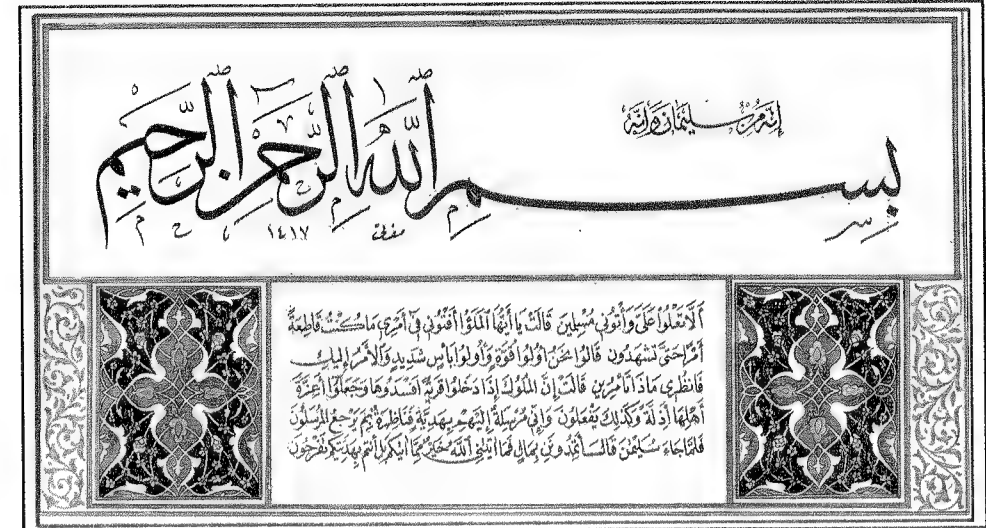 إنه من سليمان وإنه
بسم الله الرحمن الرحيم
١٤١٧
ألا تعلوا علي وأتوني مسلمين قالت يا أيها الملؤا أفتوني في أمري ما كنت قاطعة
أمرا حتى تشهدون قالوا نحن أولوا قوة وأولوا بأس شديد والأمر إليك
فانظري ماذا تأمرين قالت إن الملوك إذا دخلوا قرية أفسدوها وجعلوا أعزة
أهلها أذلة وكذلك يفعلون وإني مرسلة إليهم بهدية فناظرة بم يرجع المرسلون
فلما جاء سليمن قال أتمدونن بمال فما آتيني الله خير مما آتيكم بل أنتم بهديتكم تفرحون